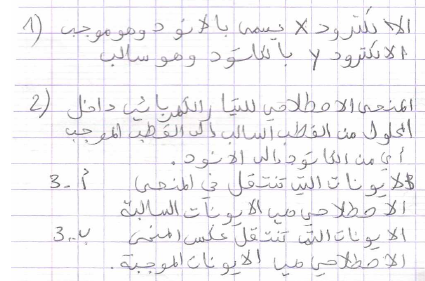 1) الالكترود x يسمى بالانود وهو موجب
الالكترود y بالكاثود وهو سالب
2) المنحى الاصطلاحي للتيار الكهربائي داخل
المحلول من القطب السالب الى القطب الموجب
أي من الكاثود الى الانود.
3.أ الايونات التي تنتقل في المنحى
الاصطلاحي هي الايونات السالبة
3.ب الايونات التي تنتقل عكس المنحى
الاصطلاحي هي الايونات الموجبة.